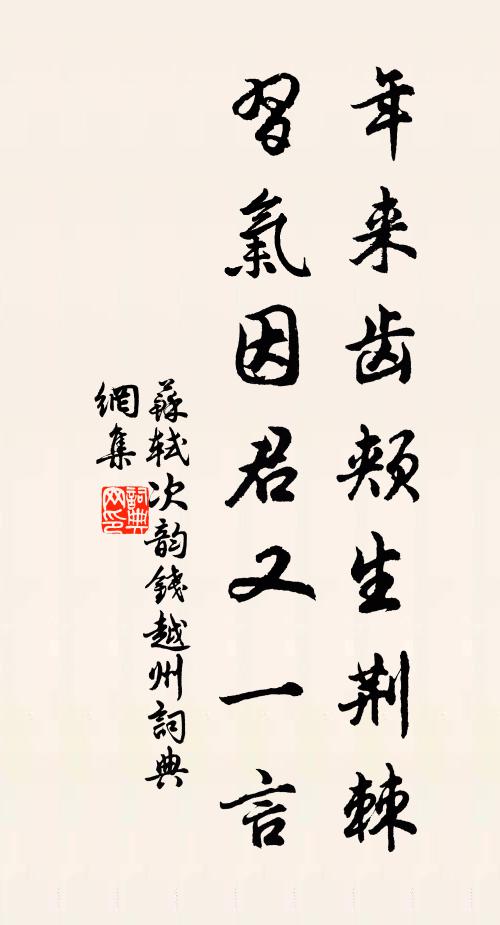 年来齿颊生荆棘
習氣因君又一言
蘇軾次韵錢越州詞典
網集
詞典网印